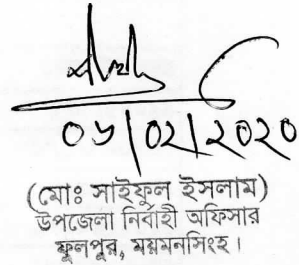 ০৬/০২/২০২০
(মোঃ সাইফুল ইসলাম)
উপজেলা নির্বাহী অফিসার
ফুলপুর, ময়মনসিংহ।